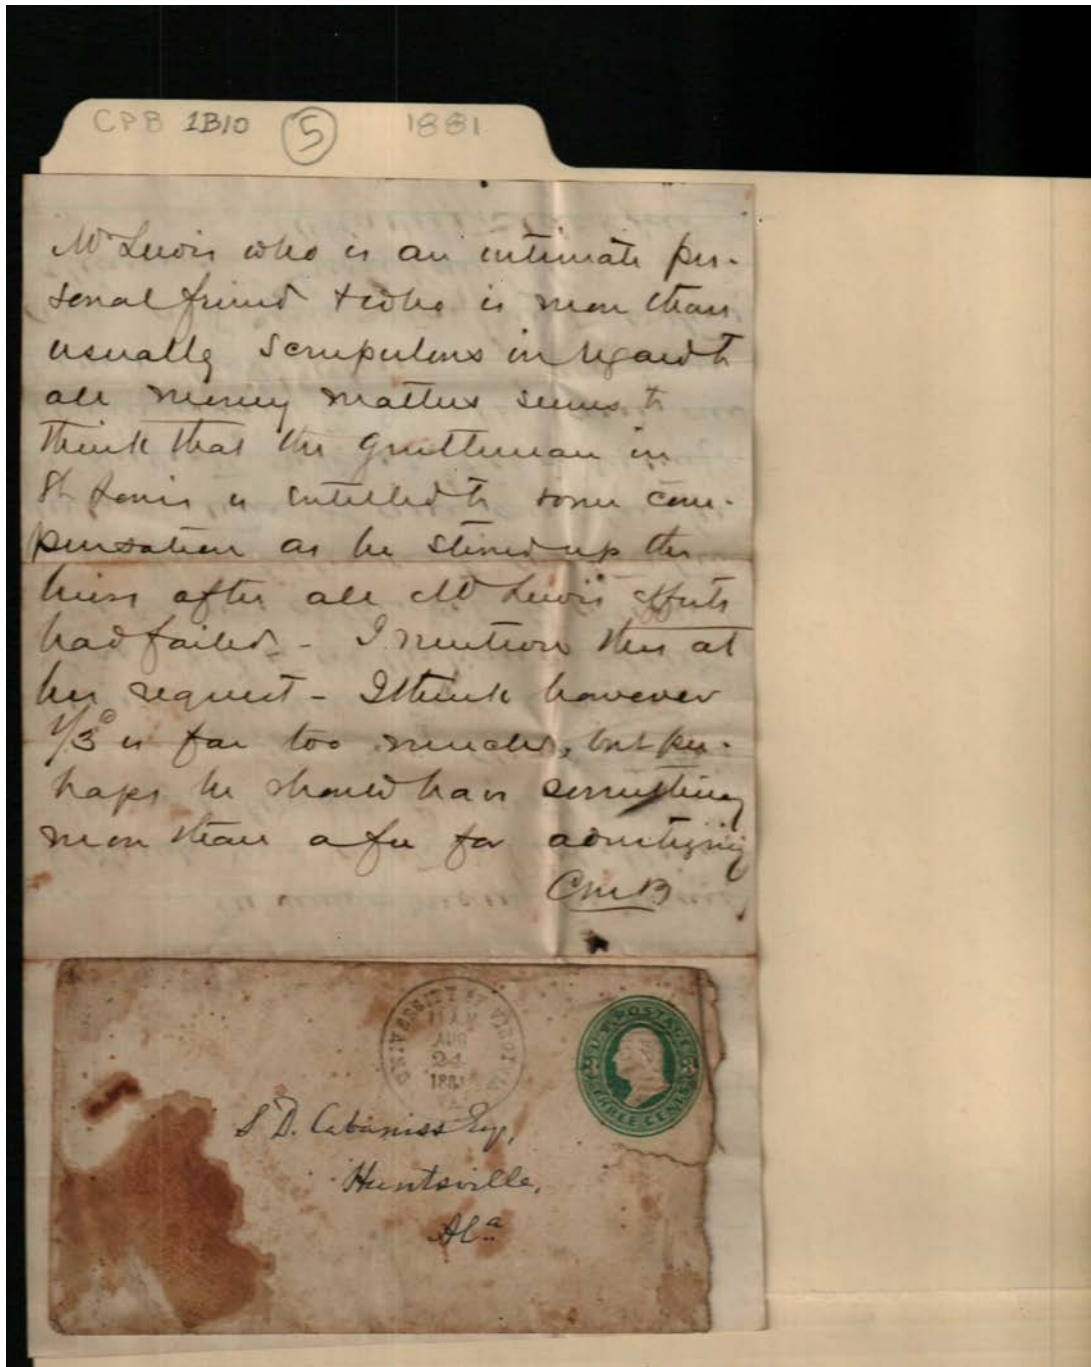 CPB 1B10 5 1881
Mr Lewis who is an intimate per-
sonal friend + who is more than
usually scrupulous in regard to
all money matters seems to
think that the gentleman in
St Louis is entitled to some com-
pensation as he stirred up the
heirs after all Mr Lewis' efforts
had failed. - I mention this at
his request - I think however
1/3 is far too much, but per-
haps he should have something
more than a fee for advertising
CMB
UNIVERSITY OF VIRGINIA
11 AM
AUG
24
1881
U.S. POSTAGE
THREE CENTS
S D. Cabaniss Esq,
Huntsville,
Ala